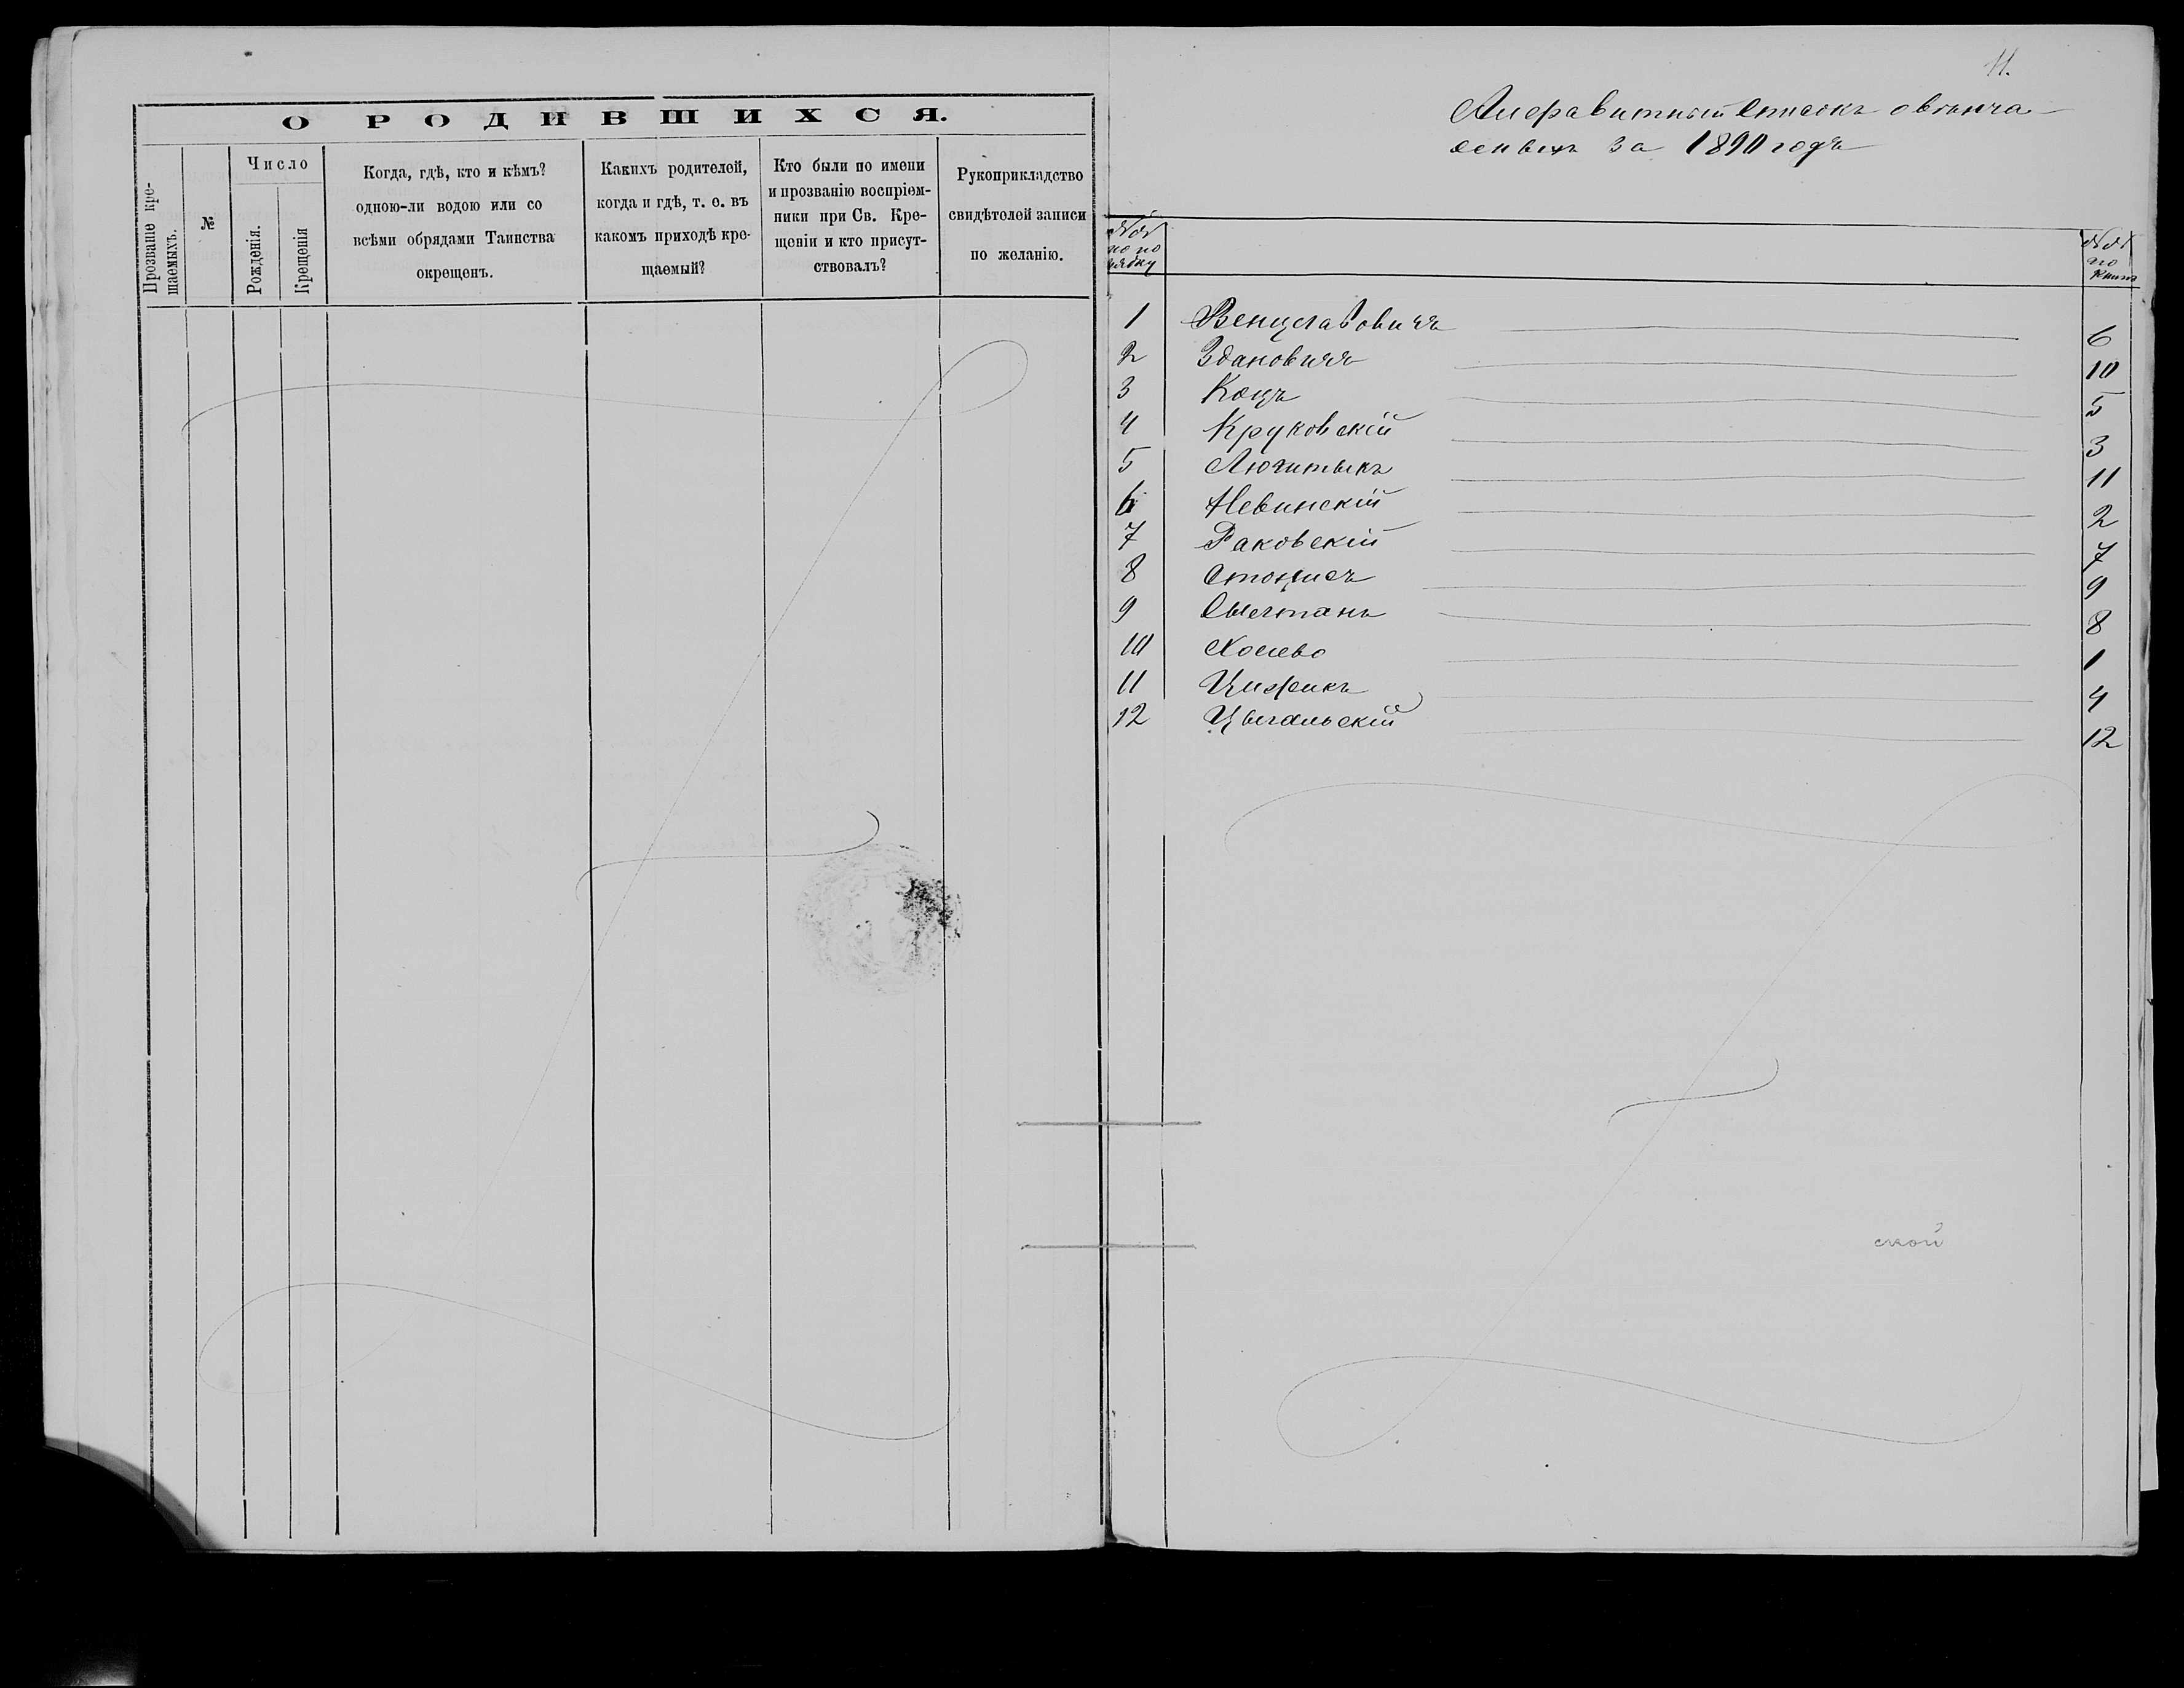 О РОДИВШИХСЯ.
Прозваніе кре-
щаемыхъ.
№
Число
Рожденія.
Крещенія
Когда, гдѣ, кто и кѣмъ?
одною-ли водою или со
всѣми обрядами Таинства
окрещенъ.
Какихъ родителей,
когда и гдѣ, т. е. въ
какомъ приходѣ кре-
щаемый?
Кто были по имени
и прозванію воспріем-
ники при Св. Кре-
щеніи и кто присут-
ствовалъ?
Рукоприкладство
свидѣтелей записи
по желанію.
11.
Алфавитный Списокъ овѣнча-
нныхъ за 1890 годъ
№№ по по
рядку
№№
по
книгѣ
1 Венцславовичъ 6
2 Здановичъ 10
3 Коцъ 5
4 Круковскій 3
5 11
6 Невинскій 2
7 Раковскій 7
8 9
9 8
10 1
11 Цижикъ 4
12 Цыгальскій 12
ской